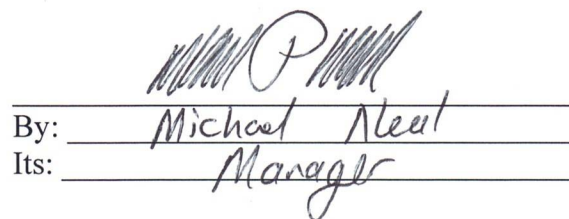 By: Michael Neal
Its: Manager